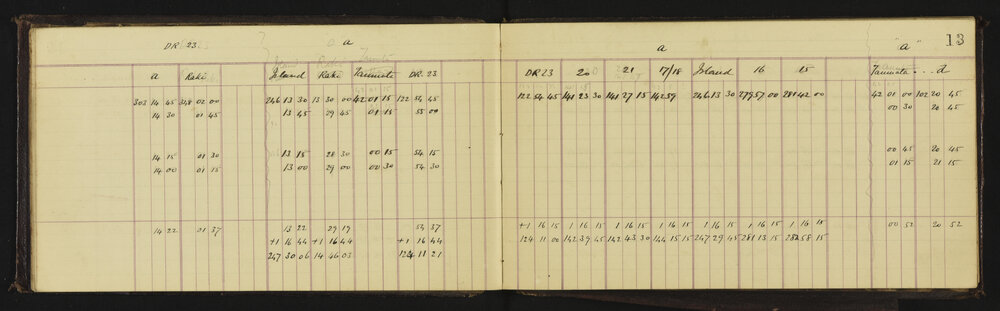 13
DR 23 a a "a"
a Raki Island Raki Taumata DR 23 DR 23 20 21 17/18 Island 16 15 Taumata d
303 14 45 348 02 00 246 13 30 13 30 00 42 01 15 122 54 45 122 54 45 141 23 30 141 27 15 142 59 246 13 30 279 57 00 281 42 00 42 01 00 102 20 45
14 30 01 45 13 45 29 45 01 15 55 00 00 30 20 45
14 15 01 30 13 15 28 30 00 15 54 15 00 45 20 45
14 00 01 15 13 00 29 00 00 30 54 30 01 15 21 15
14 22 01 37 13 22 29 19 54 37 +1 16 15 1 16 15 1 16 15 1 16 15 1 16 15 1 16 15 1 16 15 00 52 20 52
+1 16 44 +1 16 44 +1 16 44 124 11 00 142 39 45 142 43 30 144 15 15 247 29 45 281 13 15 282 58 15
247 30 06 14 46 03 124 11 21